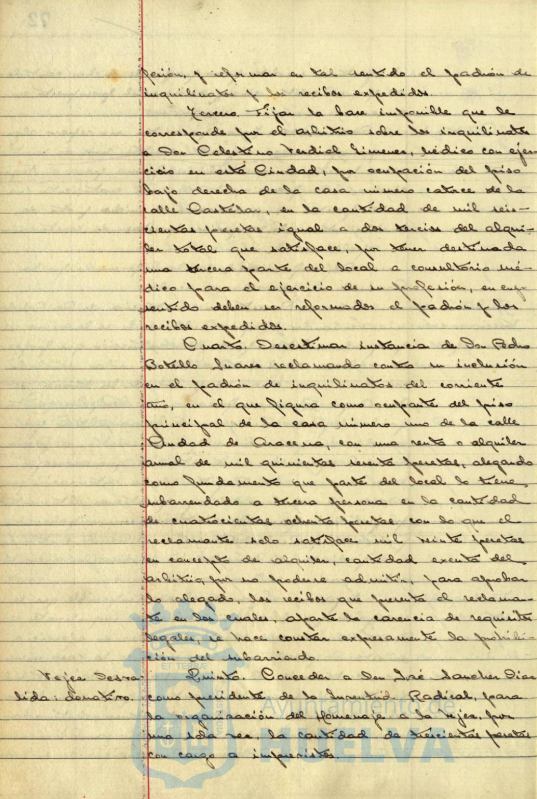 fesión, y reformar en tal sentido el padrón de
inquilinatos y los recibos expedidos.
Tercero. Fijar la base imponible que le
corresponde por el arbitrio sobre los inquilinatos
a Don Celestino Verdial Gimenez, médico con ejer-
cicio en esta Ciudad, por ocupación del piso
bajo derecha de la casa número catorce de la
calle Castelar, en la cantidad de mil seis-
cientas pesetas igual a dos tercios del alqui-
ler total que satisface, por tener destinada
una tercera parte del local a consultorio mé-
dico para el ejercicio de su profesión, en cuyo
sentido deben ser reformados el padrón y los
recibos expedidos.
Cuarto. Desestimar instancia de Don Pedro
Botello Suares reclamando contra su inclusión
en el padrón de inquilinatos del corriente
año, en el que figura como ocupante del piso
principal de la casa número uno de la calle
Ciudad de Aracena, con una renta o alquiler
anual de mil quinientas sesenta pesetas, alegando
como fundamento que parte del local lo tiene
subarrendado a tercera persona en la cantidad
de cuatrocientas ochenta pesetas con lo que el
reclamante solo satisface mil veinte pesetas
en concepto de alquiler, cantidad exenta del
arbitrio, por no poderse admitir, para aprobar
lo alegado, los recibos que presenta el reclaman-
te en los cuales, aparte la carencia de requisitos
legales, se hace constar expresamente la prohibi-
ción del subarriendo.
Vejez Desva- Quinto. Conceder a Don José Sanchez Diaz
lida: donativo. como presidente de la Juventud Radical, para
la organización del Homenaje a la vejez, por
una sola vez la cantidad de trescientas pesetas
con cargo a imprevistos.
Ayuntamiento de
HUELVA